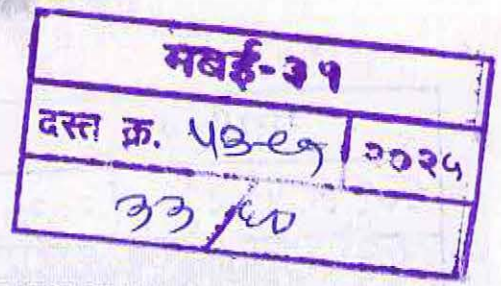 मबई-३१
दस्त क्र. | २०२५
३३/५०